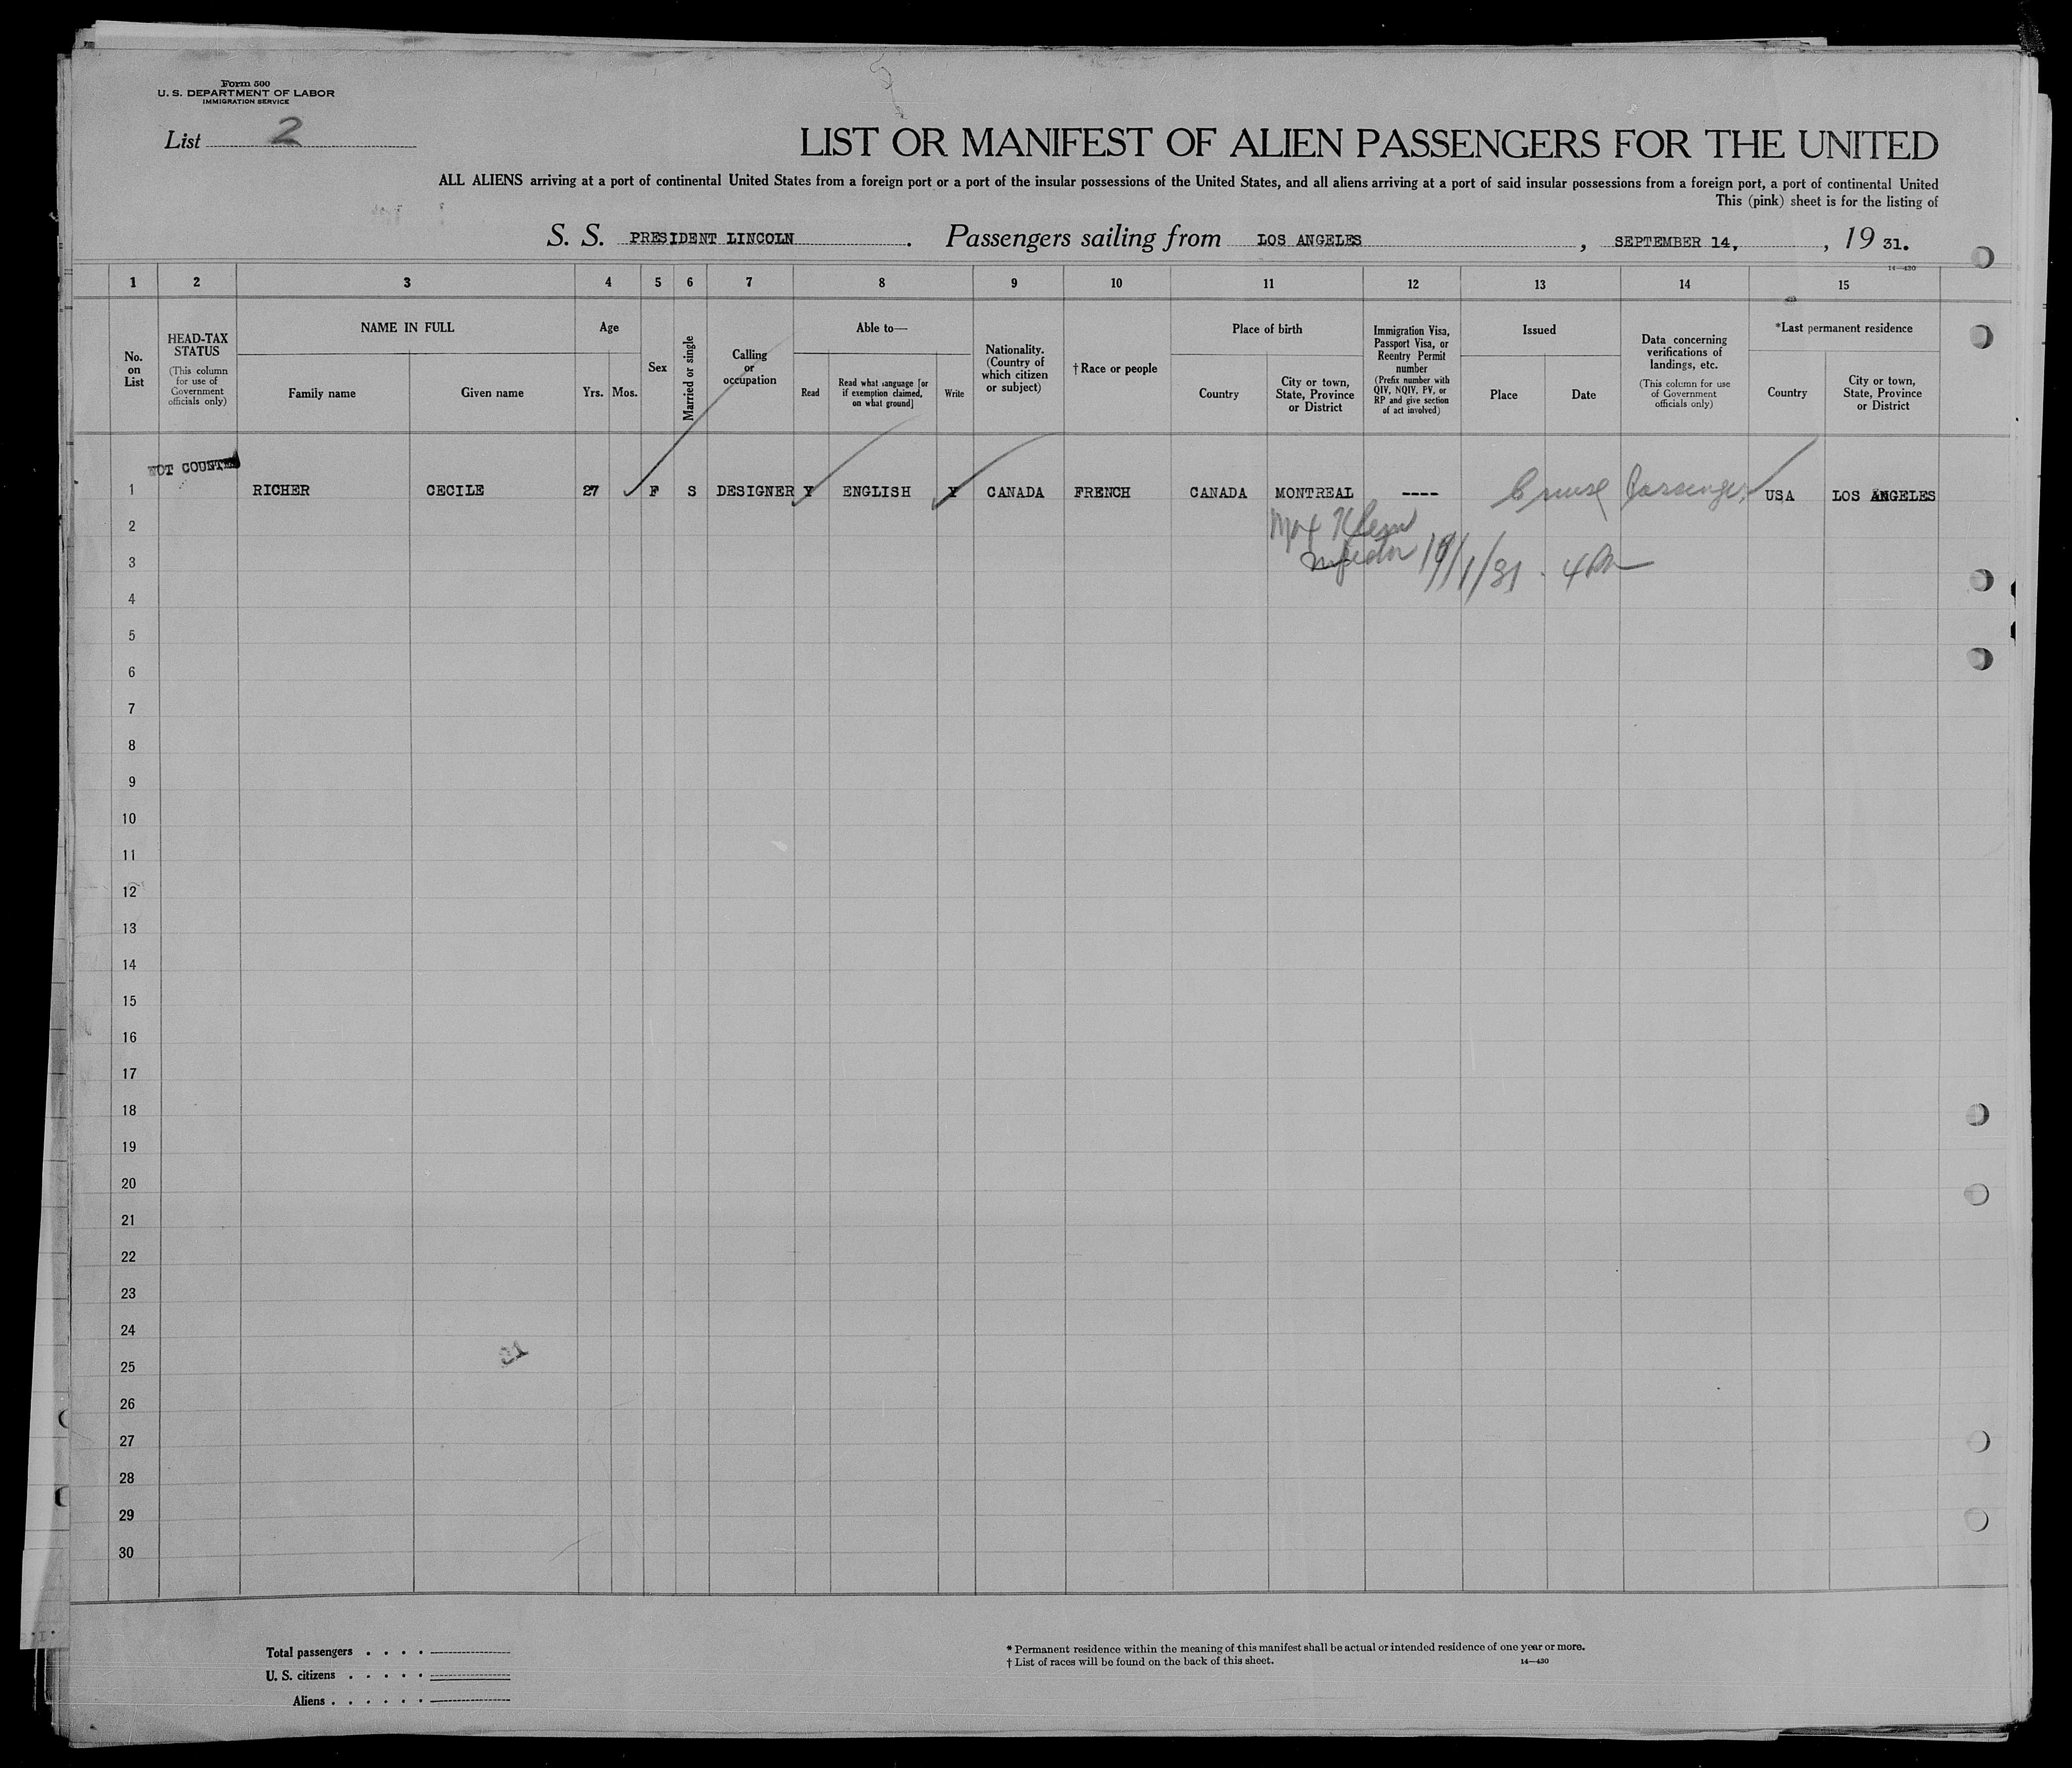 Form 500
U. S. DEPARTMENT OF LABOR
IMMIGRATION SERVICE
List 2
LIST OR MANIFEST OF ALIEN PASSENGERS FOR THE UNITED
ALL ALIENS arriving at a port of continental United States from a foreign port or a port of the insular possessions of the United States, and all aliens arriving at a port of said insular possessions from a foreign port, a port of continental United
This (pink) sheet is for the listing of
S. S. PRESIDENT LINCOLN. Passengers sailing from LOS ANGELES, SEPTEMBER 14, , 19 31.
14—430
1 2 3 4 5 6 7 8 9 10 11 12 13 14 15
No. on List
HEAD-TAX STATUS
(This column for use of Government officials only)
NAME IN FULL
Family name
Given name
Age
Yrs.
Mos.
Sex
Married or single
Calling or occupation
Able to—
Read
Read what language [or if exemption claimed, on what ground]
Write
Nationality. (Country of which citizen or subject)
†Race or people
Place of birth
Country
City or town, State, Province or District
Immigration Visa, Passport Visa, or Reentry Permit number
(Prefix number with QIV, NQIV, PV, or RP and give section of act involved)
Issued
Place
Date
Data concerning verifications of landings, etc.
(This column for use of Government officials only)
*Last permanent residence
Country
City or town, State, Province or District
NOT COUNTED
1 RICHER CECILE 27 F S DESIGNER Y ENGLISH Y CANADA FRENCH CANADA MONTREAL ---- Cruise Passenger USA LOS ANGELES
2
3 10/1/31 .
4
5
6
7
8
9
10
11
12
13
14
15
16
17
18
19
20
21
22
23
24
25
26
27
28
29
30
Total passengers . . . .
U. S. citizens . . . . .
Aliens . . . . . .
* Permanent residence within the meaning of this manifest shall be actual or intended residence of one year or more.
† List of races will be found on the back of this sheet.
14—430